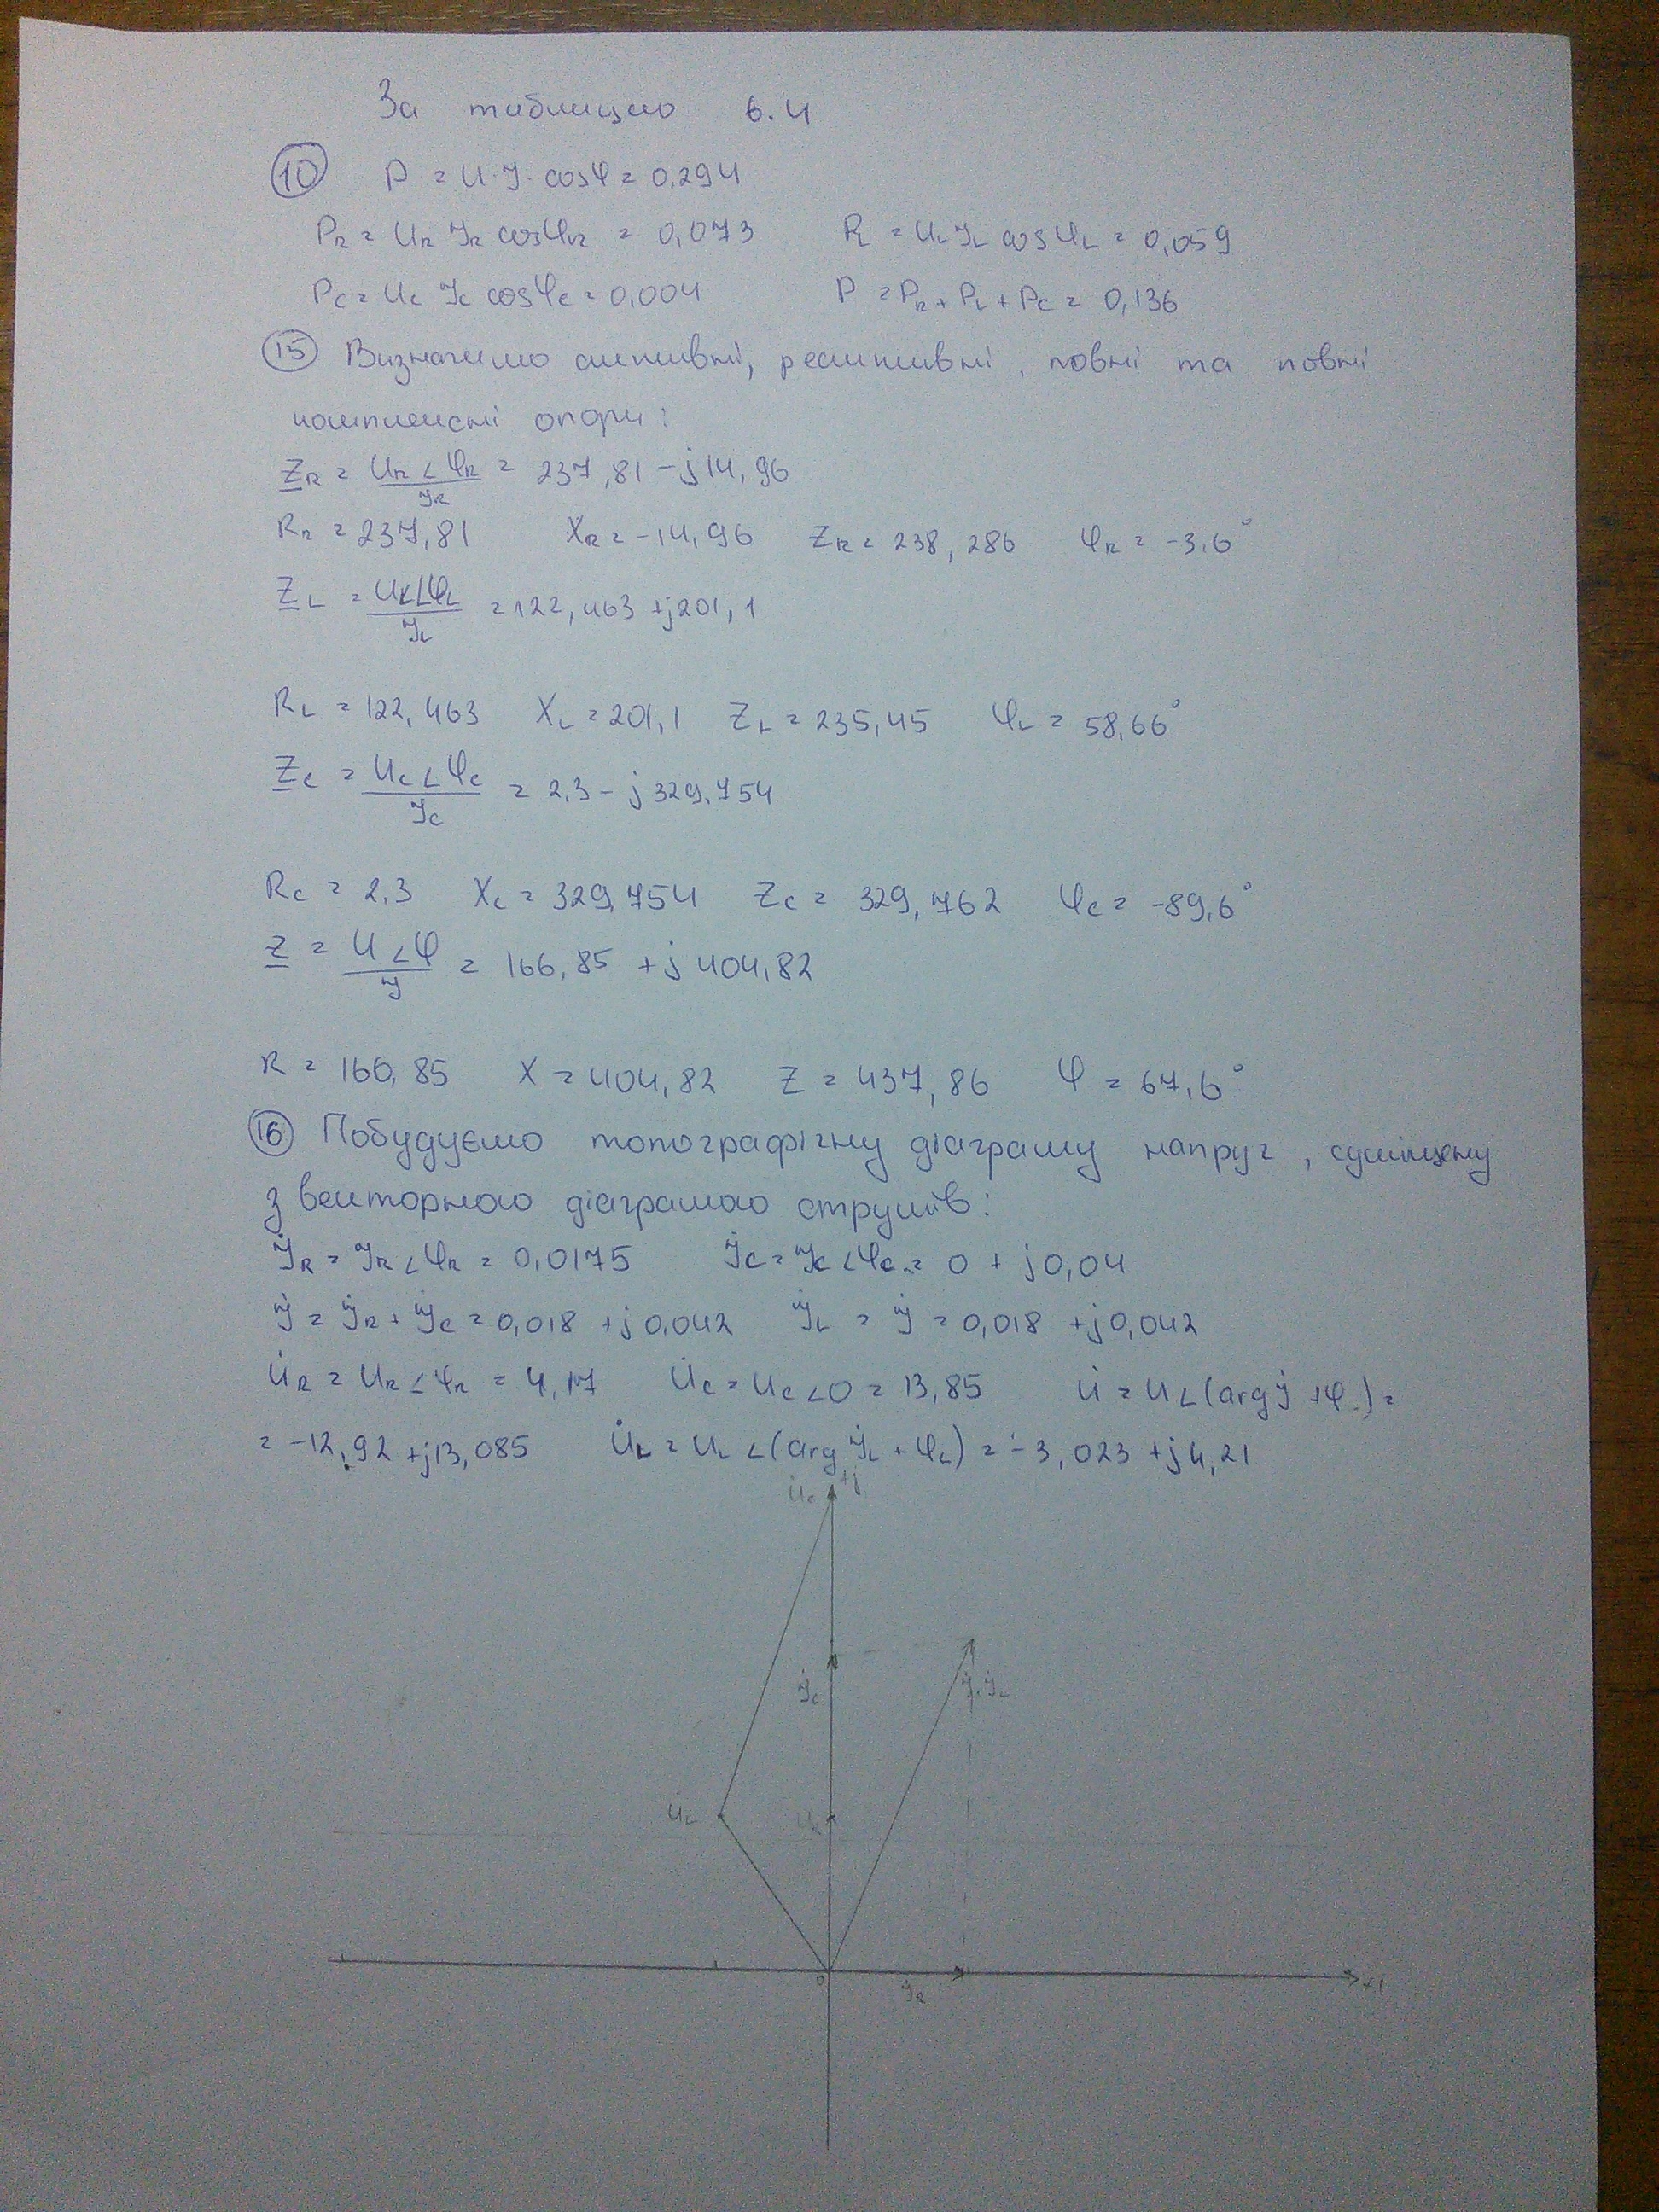 За таблицею 6.4
10 P = U·I·cosφ = 0,294
P_R = U_R I_R cosφ_R = 0,073 P_L = U_L I_L cosφ_L = 0,059
P_C = U_C I_C cosφ_C = 0,004 P = P_R + P_L + P_C = 0,136
15 Визначимо активні, реактивні, повні та повні
комплексні опори:
Z_R = U_R∠φ_R / I_R = 237,81 - j14,96
R_R = 237,81 X_R = -14,96 Z_R = 238,286 φ_R = -3,6°
Z_L = U_L∠φ_L / I_L = 122,463 + j201,1
R_L = 122,463 X_L = 201,1 Z_L = 235,45 φ_L = 58,66°
Z_C = U_C∠φ_C / I_C = 2,3 - j329,754
R_C = 2,3 X_C = 329,754 Z_C = 329,762 φ_C = -89,6°
Z = U∠φ / I = 166,85 + j404,82
R = 166,85 X = 404,82 Z = 437,86 φ = 67,6°
16 Побудуємо топографічну діаграму напруг, суміщену
з векторною діаграмою струмів:
İ_R = I_R∠φ_R = 0,0175 İ_C = I_C∠φ_C = 0 + j0,04
İ = İ_R + İ_C = 0,018 + j0,042 İ_L = İ = 0,018 + j0,042
U̇_R = U_R∠φ_R = 4,17 U̇_C = U_C∠0 = 13,85 U̇ = U∠(arg İ + φ) =
= -12,92 + j13,085 U̇_L = U_L∠(arg İ_L + φ_L) = -3,023 + j4,21
U̇_C +j
İ_C İ, İ_L
U̇_L U_R
0 İ_R +1